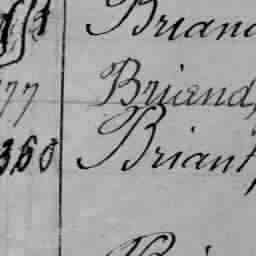 Briand
77 Briand,
360 Briant,